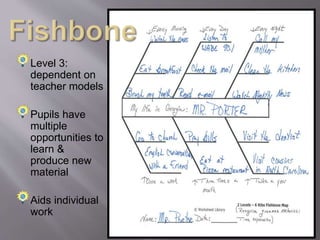 Fishbone
Level 3:
dependent on
teacher models
Pupils have
multiple
opportunities to
learn &
produce new
material
Aids individual
work
Every Morning
Every Day
Every night
Watch the news
Listen to
WABC 95/
Call my
mother
Eat breakfast
Check the mail
Clean the kitchen
Brush my teeth
Read e-mail
Watch Nightly News
My life in Google:
MR. PORTER
Go to church
Pay bills
Visit the dentist
English Conversation
with a Friend
Eat at
Pizza restaurant
Visit cousins
in North Carolina
Once a week
times a
month
Twice a year
2 Levels – 6 Ribs Fishbone Map
© Worksheet Library
Name: Mr. Porter
Date: